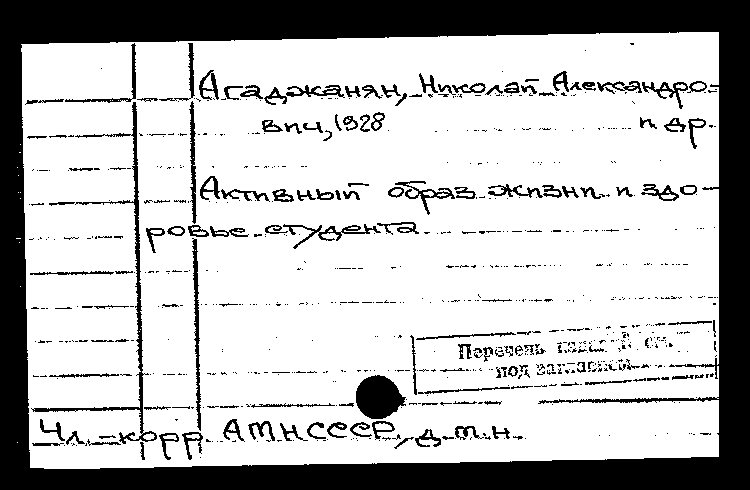 Агаджанян, Николай Александро-
вич, 1928 и др.
Активный образ жизни и здо-
ровье студента
Перечень изданий см.
под заглавием
Чл.-корр. АМН СССР, д.м.н.